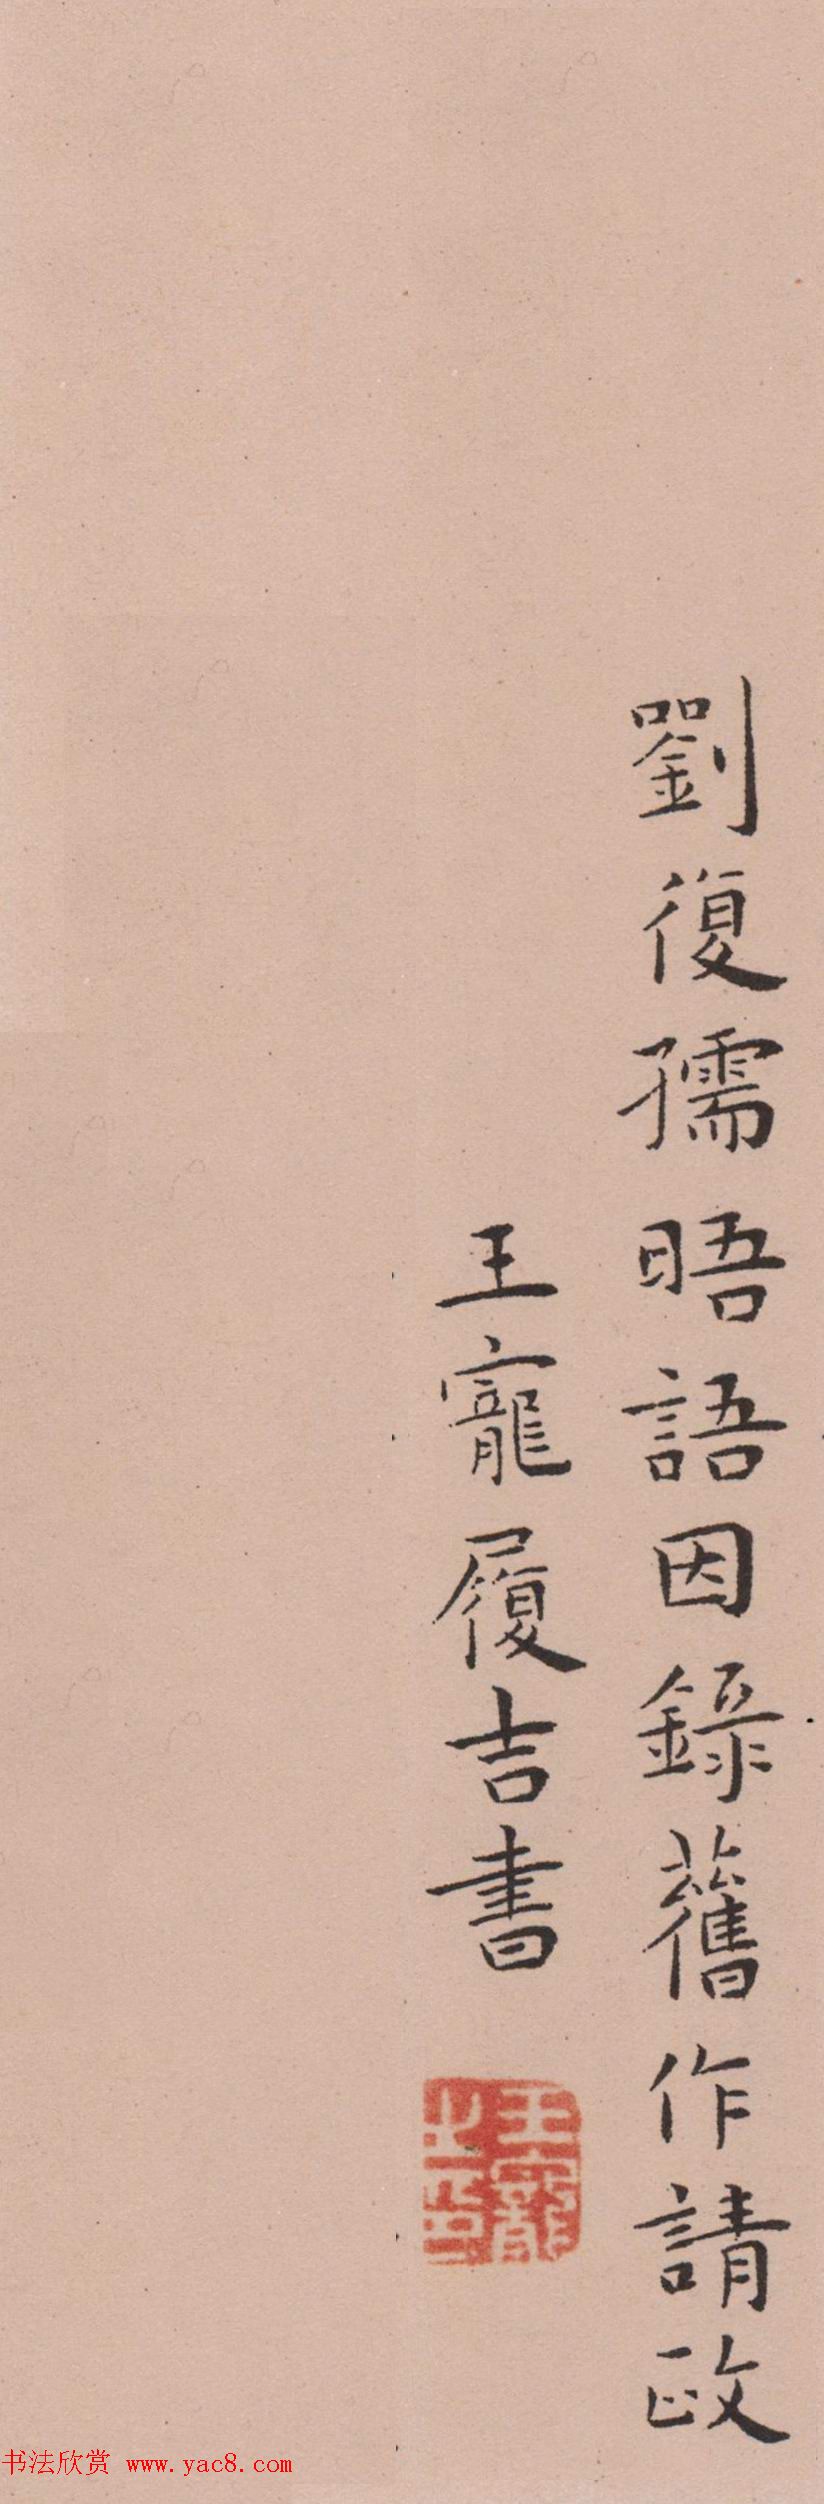 劉復孺晤語因錄舊作請政
王寵履吉書
王寵之印
书法欣赏 www.yac8.com